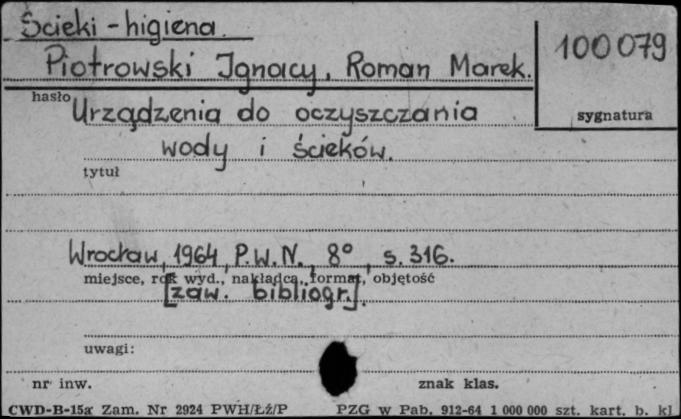 Ścieki - higiena.
Piotrowski Ignacy, Roman Marek.
100 079
hasło
sygnatura
Urządzenia do oczyszczania
wody i ścieków.
tytuł
Wrocław, 1964, P.W.N., 8°, s. 316.
miejsce, rok wyd., nakładca, format, objętość
[zaw. bibliogr.].
uwagi:
nr inw. znak klas.
CWD-B-15a Zam. Nr 2924 PWH/Łź/P PZG w Pab. 912-64 1 000 000 szt. kart. b. kl